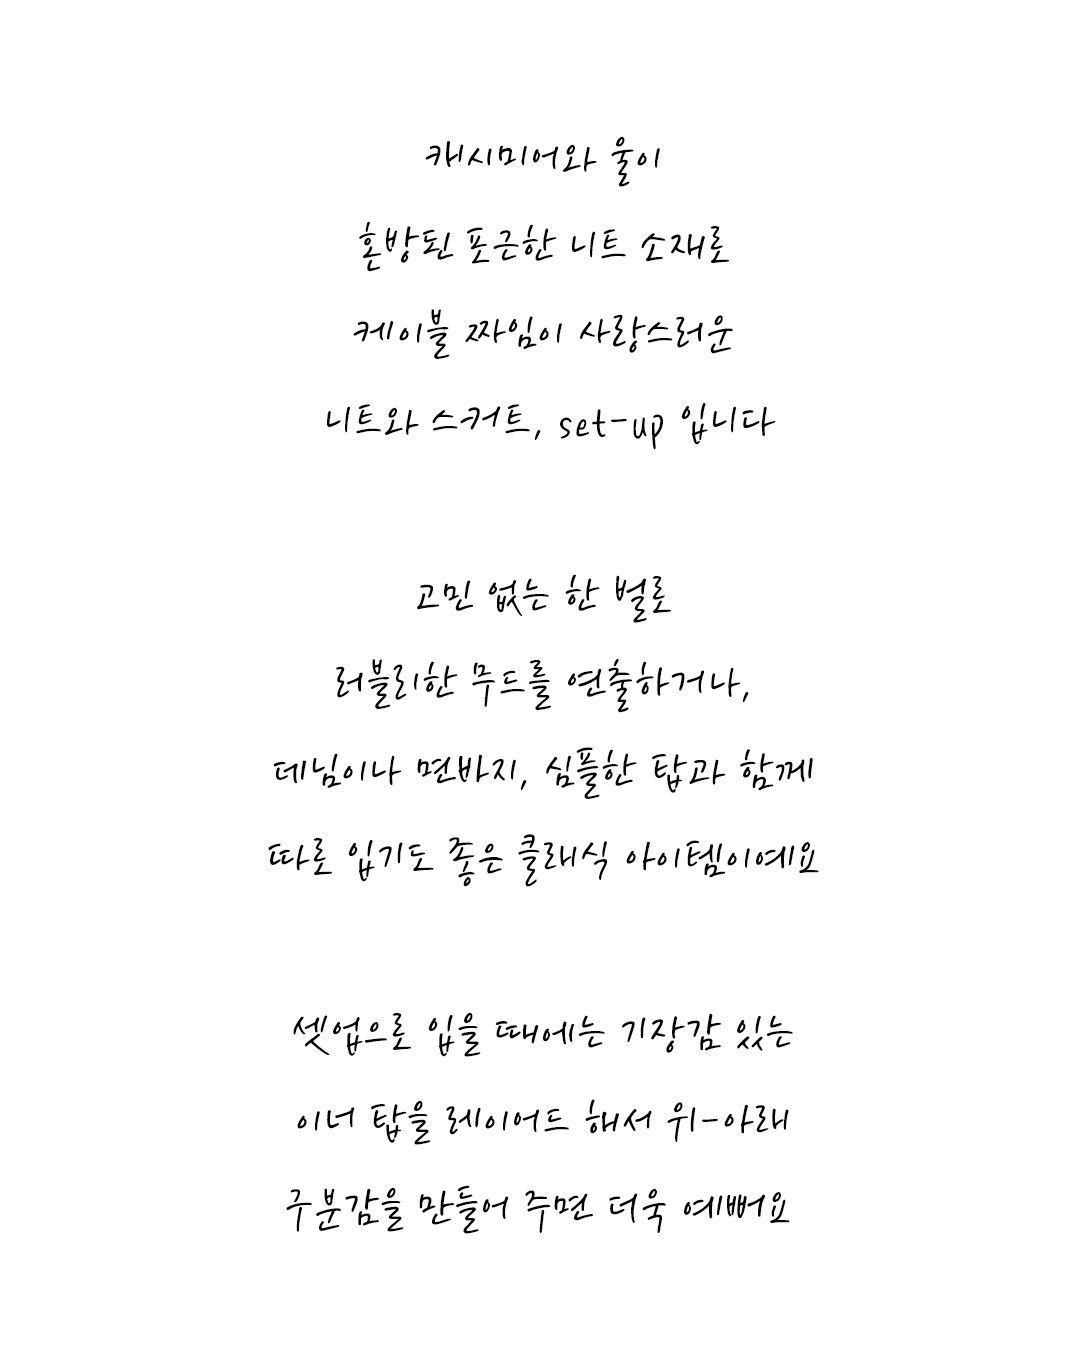 캐시미어와 울이
혼방된 포근한 니트 소재로
케이블 짜임이 사랑스러운
니트와 스커트, set-up 입니다
고민 없는 한 벌로
러블리한 무드를 연출하거나,
데님이나 면바지, 심플한 탑과 함께
따로 입기도 좋은 클래식 아이템이예요
셋업으로 입을 때에는 기장감 있는
이너 탑을 레이어드 해서 위-아래
구분감을 만들어 주면 더욱 예뻐요